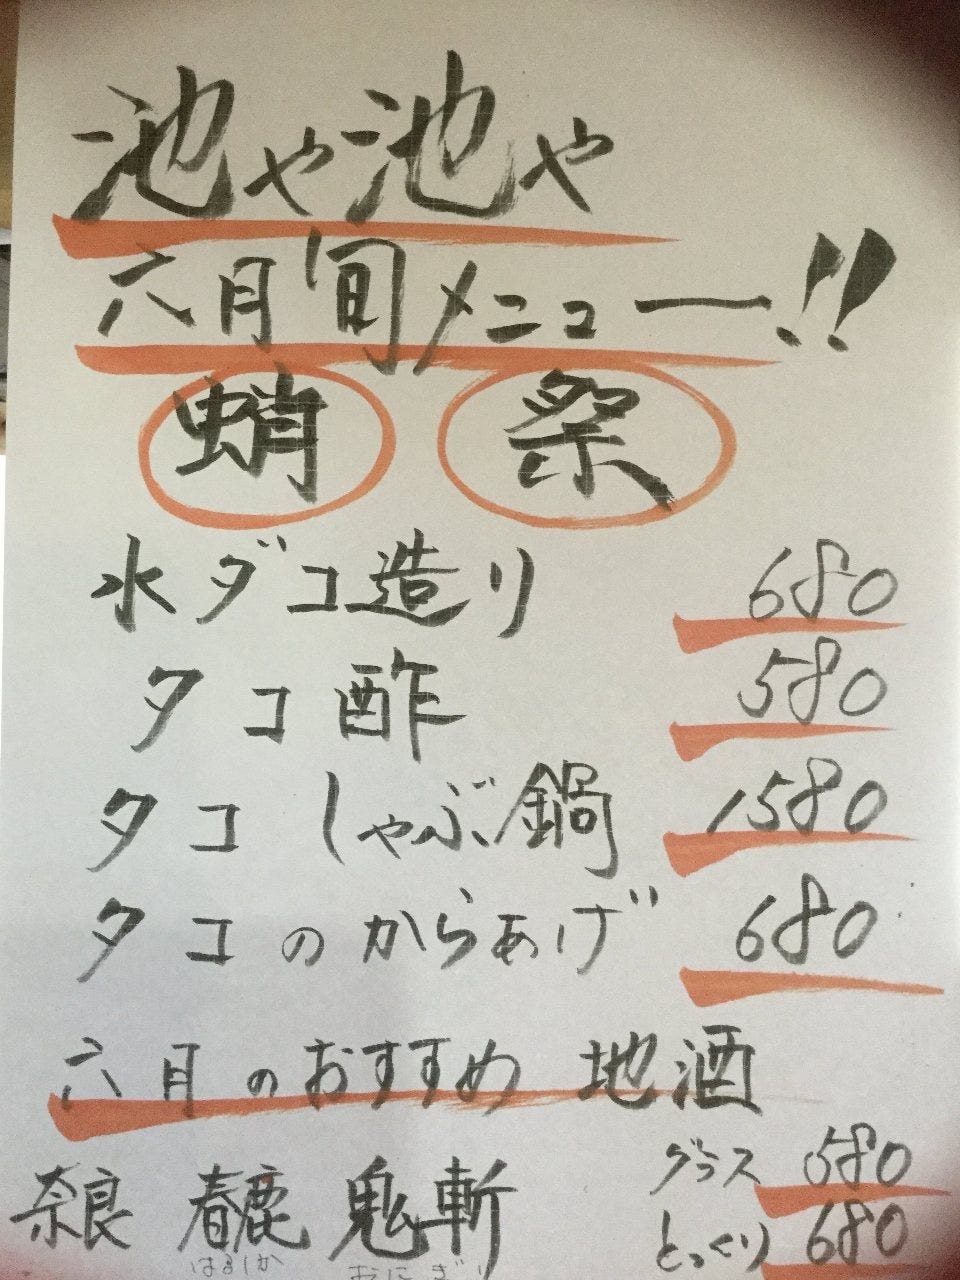 池や池や
六月旬メニュー!!
蛸 祭
水ダコ造り 680
タコ酢 580
タコしゃぶ鍋 1580
タコのからあげ 680
六月のおすすめ 地酒
奈良 春鹿 鬼斬 グラス 580
はるしか おにぎり とっくり 680